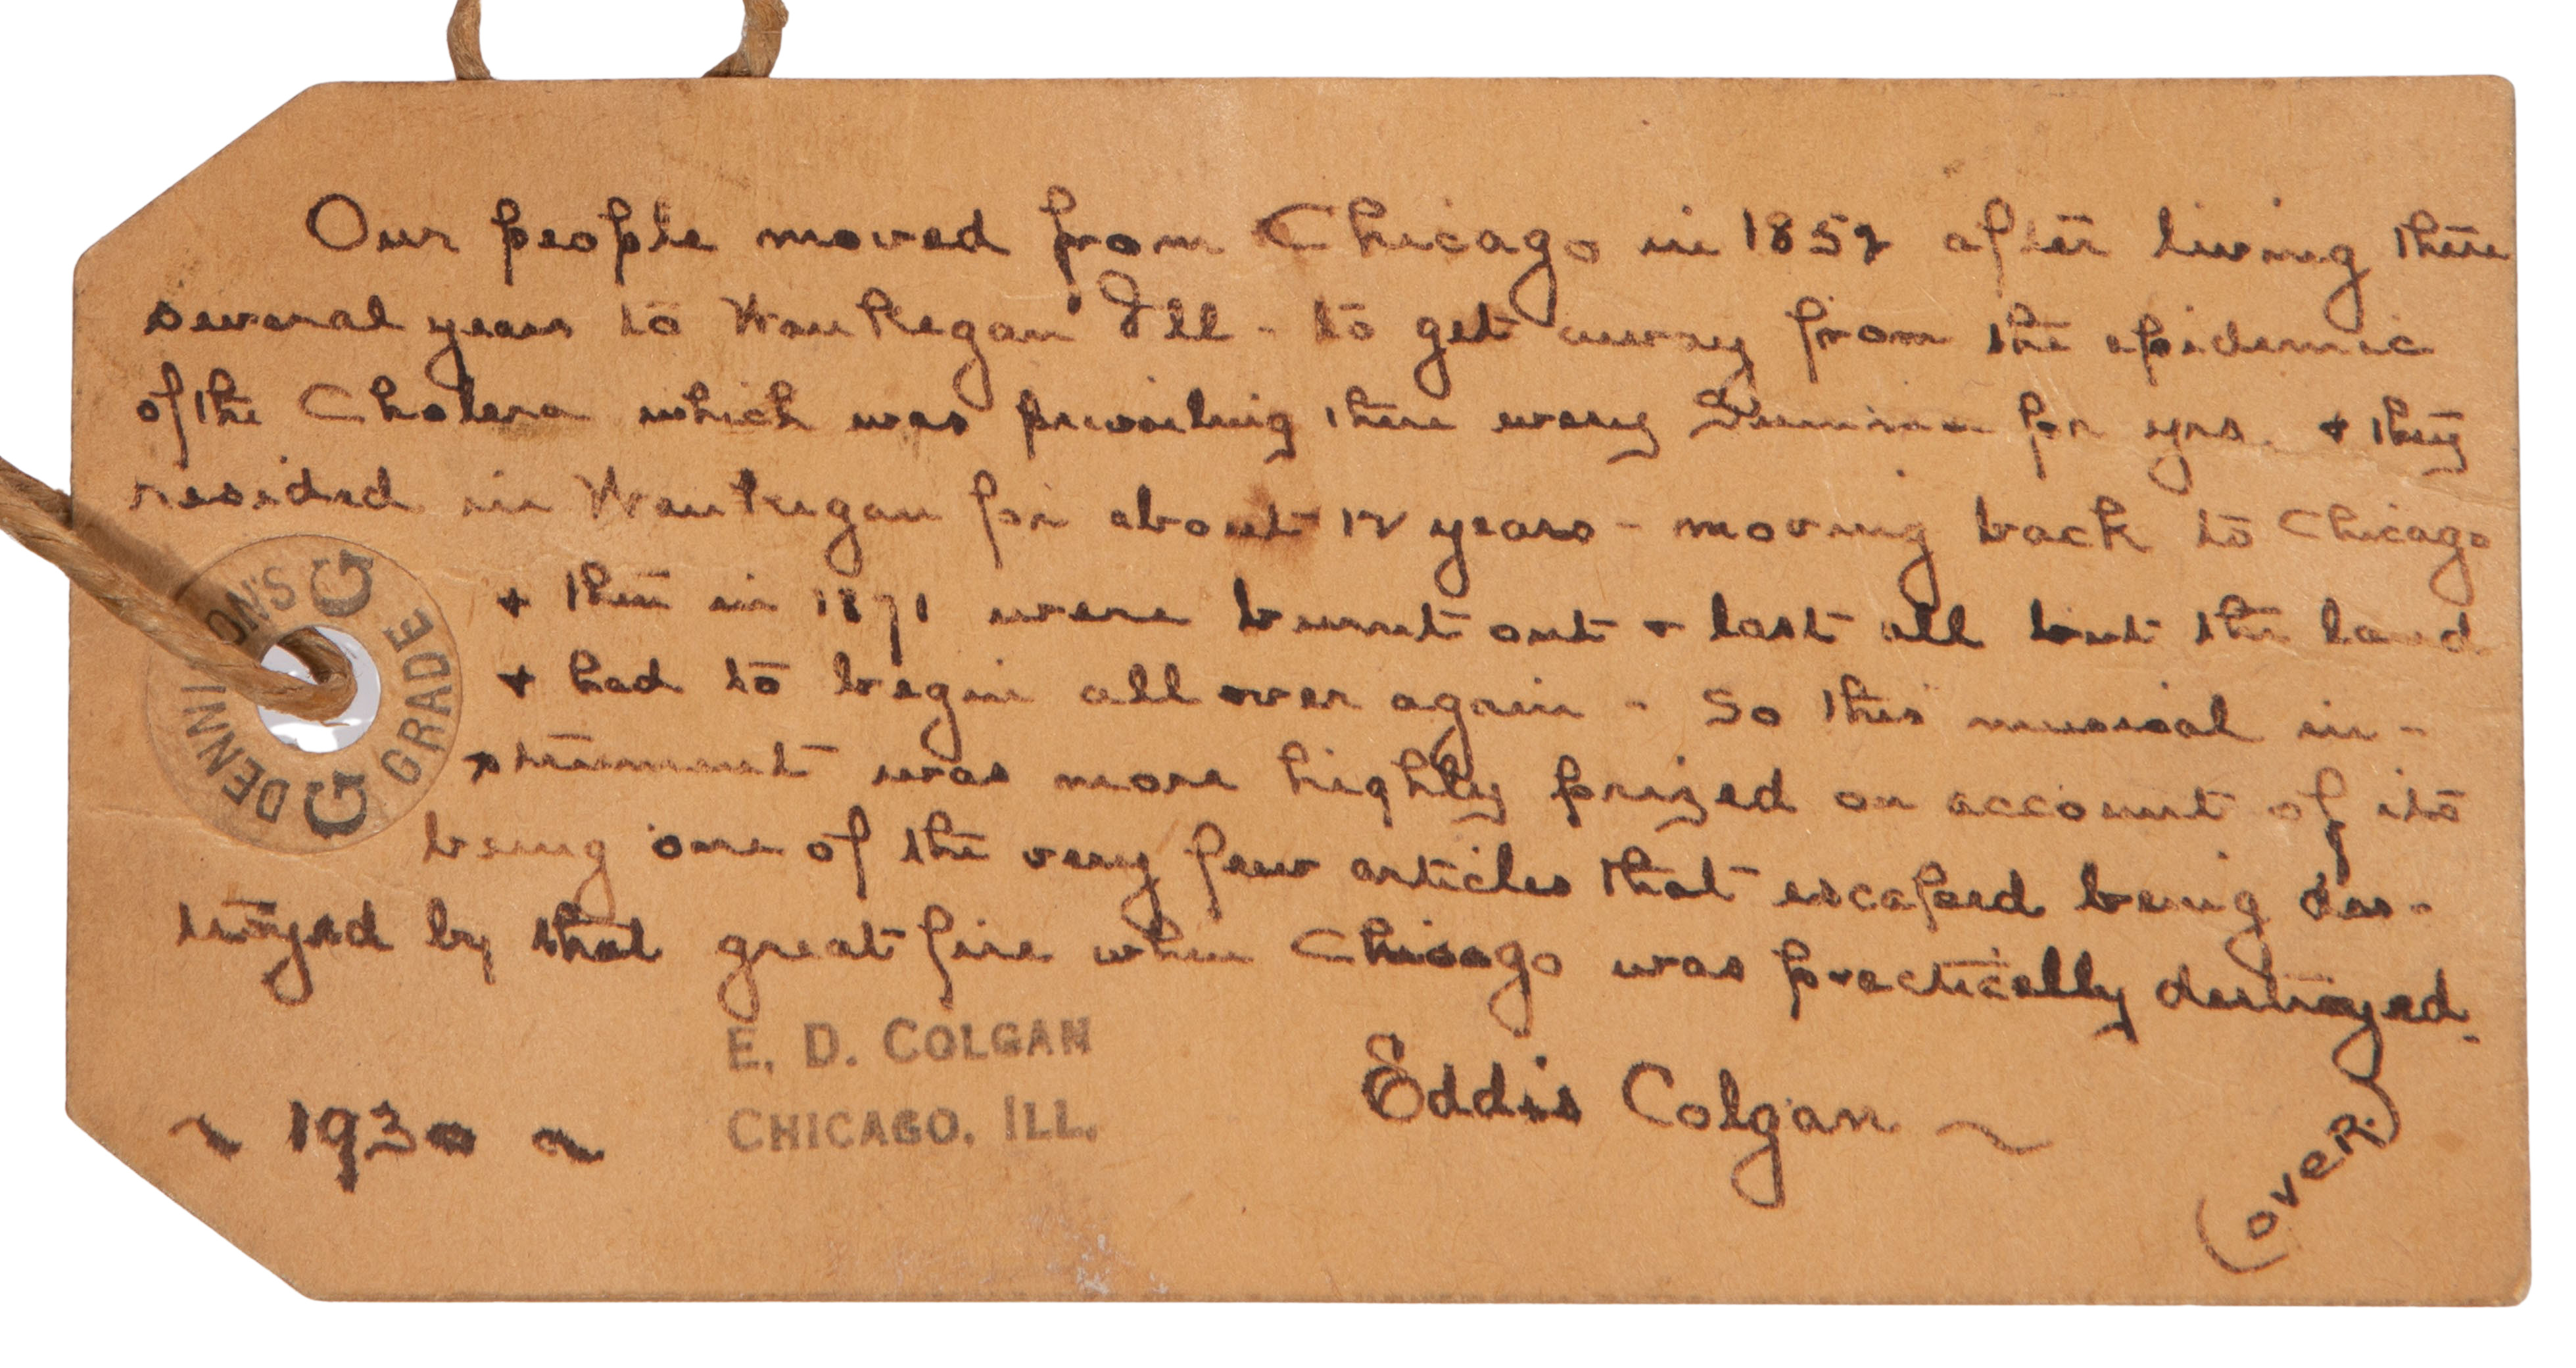 Our people moved from Chicago in 1852 after living there
several years to Waukegan Ill - to get away from the epidemic
of the Cholera which was prevailing there every Summer for yrs. + they
resided in Waukegan for about 12 years - moving back to Chicago
+ then in 1871 were burnt out + lost all but the land
+ had to begin all over again - So this musical in-
strument was more highly prized on account of its
being one of the very few articles that escaped being des-
troyed by that great fire when Chicago was practically destroyed.
Eddis Colgan ~
~ 1930 ~
E. D. COLGAN
CHICAGO, ILL.
(OVER)
DENNISONS
G GRADE G